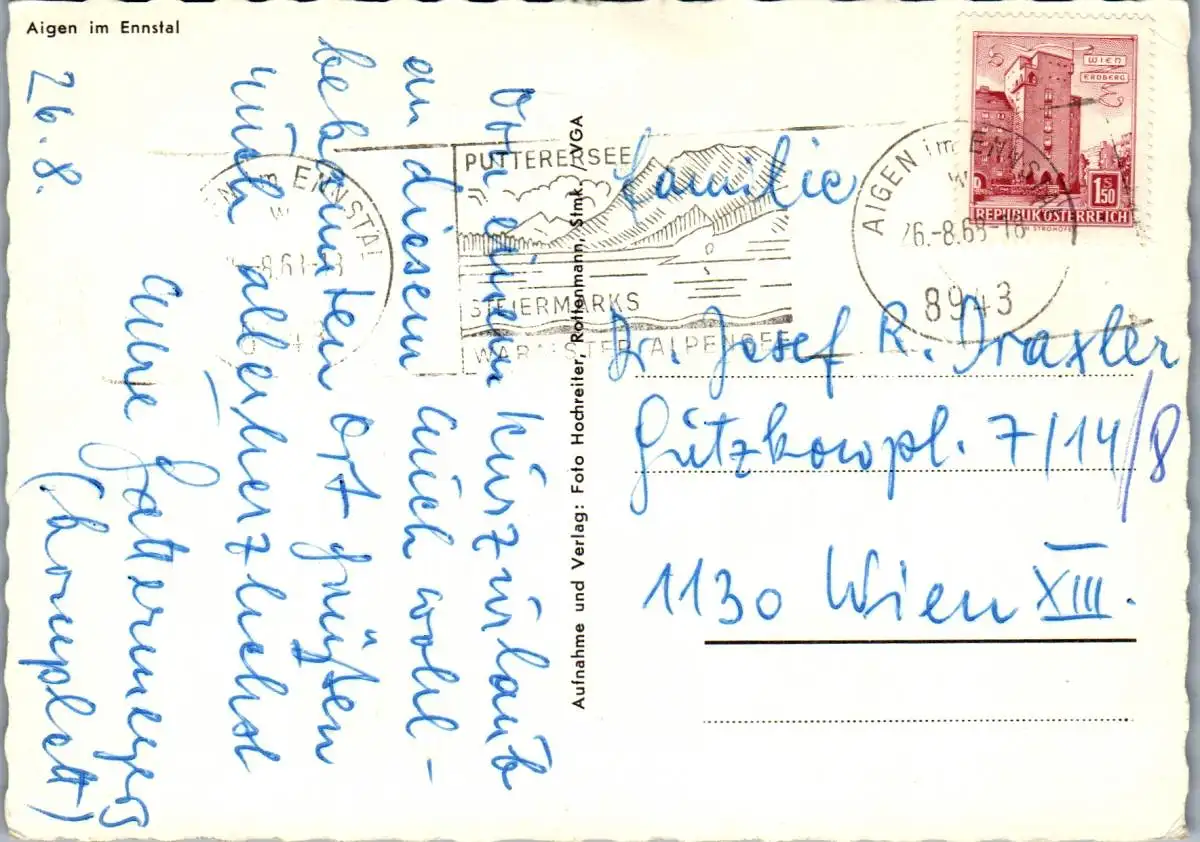 Aigen im Ennstal
26.8.
Von einem Kurzurlaub
an diesem Euch wohl-
bekannten Ort grüßen
Euch allerherzlichst
Eure
(komplett)
Aufnahme und Verlag: Foto Hochreiter, Rottenmann, Stmk. /VGA
PUTTERERSEE
STEIERMARKS
WÄRMSTER ALPENSEE
ENNSTAL
AIGEN im ENNSTAL
26.-8.68-18
8943
WIEN
ERDBERG
S
1.50
REPUBLIK ÖSTERREICH
Familie
Dr. Josef R. Draxler
Gützkowpl. 7/14/8
1130 Wien XIII.